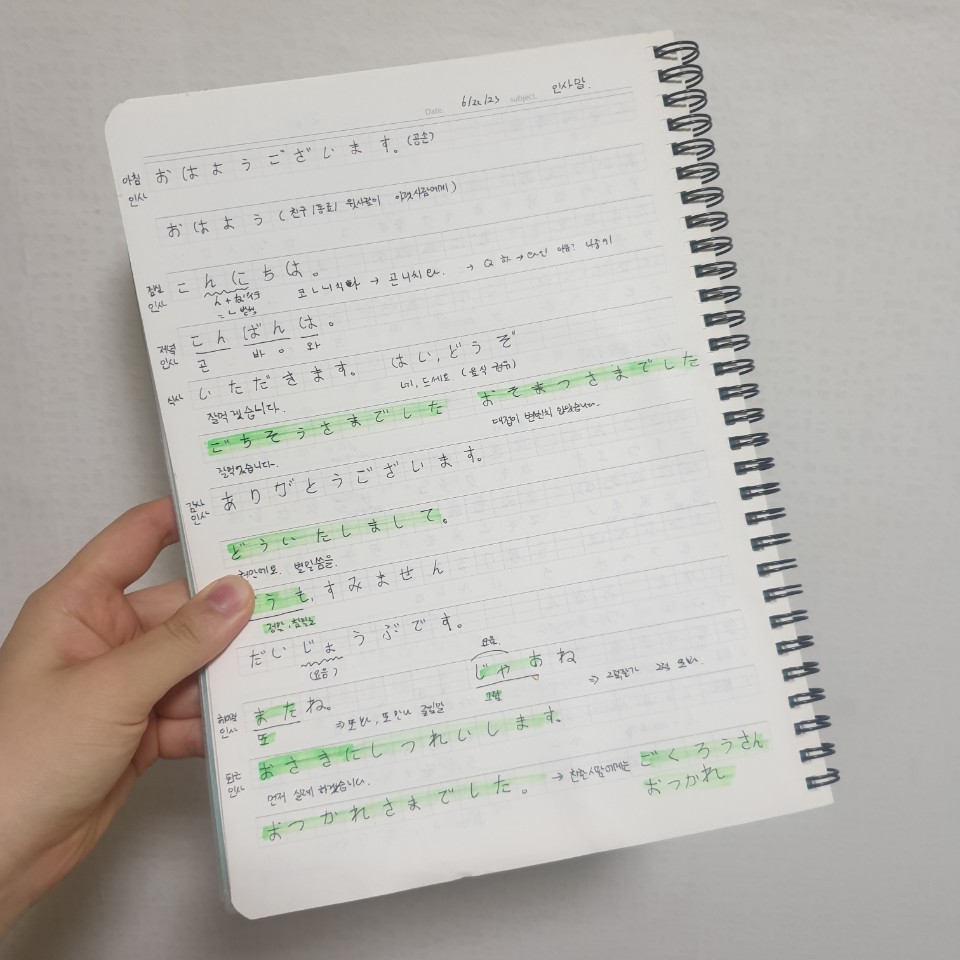 Date. 6/22/23 subject. 인사말.
아침 인사 おはようございます。(공손)
おはよう (친구/동료/ 윗사람이 아랫사람에게)
점심 인사 こんにちは。
코ㄴ니치와 → 곤니치와.
저녁 인사 こんばんは。
곤 바 ㅇ 와
식사 いただきます。 はい,どうぞ
잘먹겠습니다. 네, 드세요 (음식 권유)
ごちそうさまでした おそまつさまでした
잘먹었습니다. 대접이 변변치 않았습니다.
감사 인사 ありがとうございます。
どういたしまして。
천만에요. 별말씀을.
うも,すみません
정말, 참으로
だいじょうぶです。
(요음)
헤어질 인사 またね。 じゃあね
또 ⇒ 또 봐, 또 만나 줄임말 요음. 그럼 ⇒ 그럼 또 봐.
퇴근 인사 おさきにしつれいします。
먼저 실례 하겠습니다.
おつかれさまでした。 → 친한사람에게는 ごくろうさん
おつかれ